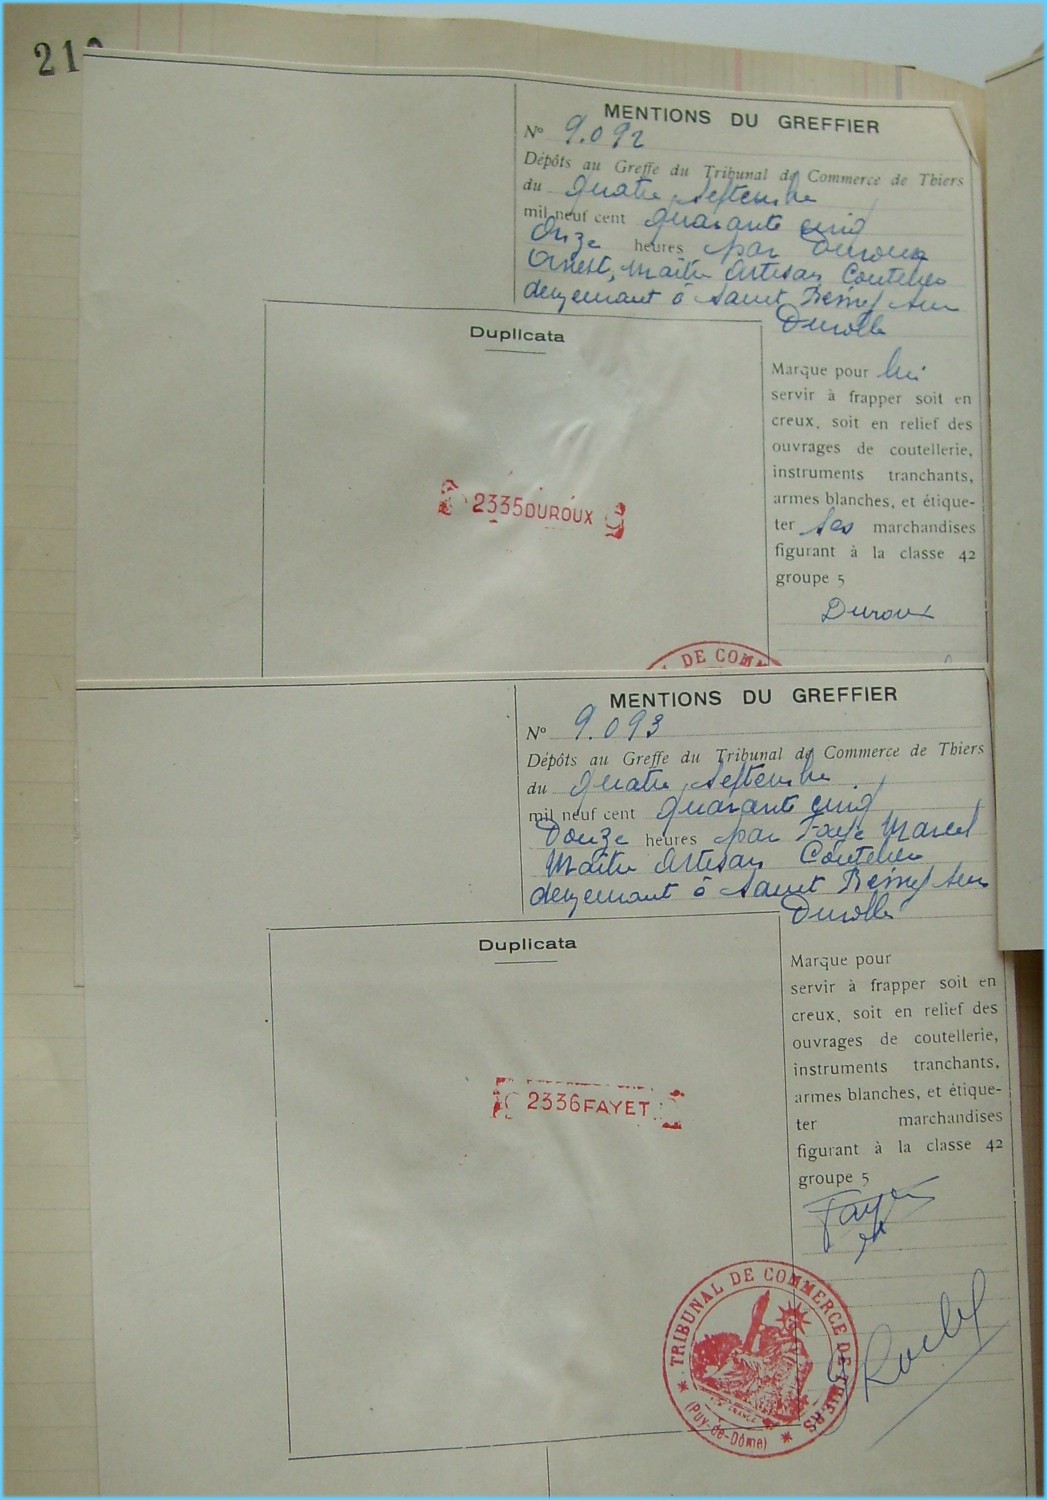 21
MENTIONS DU GREFFIER
Nº 9.092
Dépôts au Greffe du Tribunal de Commerce de Thiers
du quatre septembre
mil neuf cent quarante cinq
Onze heures par Duroux
Ernest, Maître Artisan Coutelier
demeurant à Saint Rémy sur
Durolle
Duplicata
Marque pour lui
servir à frapper soit en
creux, soit en relief des
ouvrages de coutellerie,
instruments tranchants,
armes blanches, et étique-
ter ses marchandises
figurant à la classe 42
groupe 5
2335 DUROUX
Duroux
DE COMM
MENTIONS DU GREFFIER
Nº 9.093
Dépôts au Greffe du Tribunal de Commerce de Thiers
du quatre septembre
mil neuf cent quarante cinq
Douze heures par Fayet Marcel
Maître Artisan Coutelier
demeurant à Saint Rémy sur
Durolle
Duplicata
Marque pour
servir à frapper soit en
creux, soit en relief des
ouvrages de coutellerie,
instruments tranchants,
armes blanches, et étique-
ter marchandises
figurant à la classe 42
groupe 5
2336 FAYET
Fayet
TRIBUNAL DE COMMERCE DE THIERS
(Puy-de-Dôme)